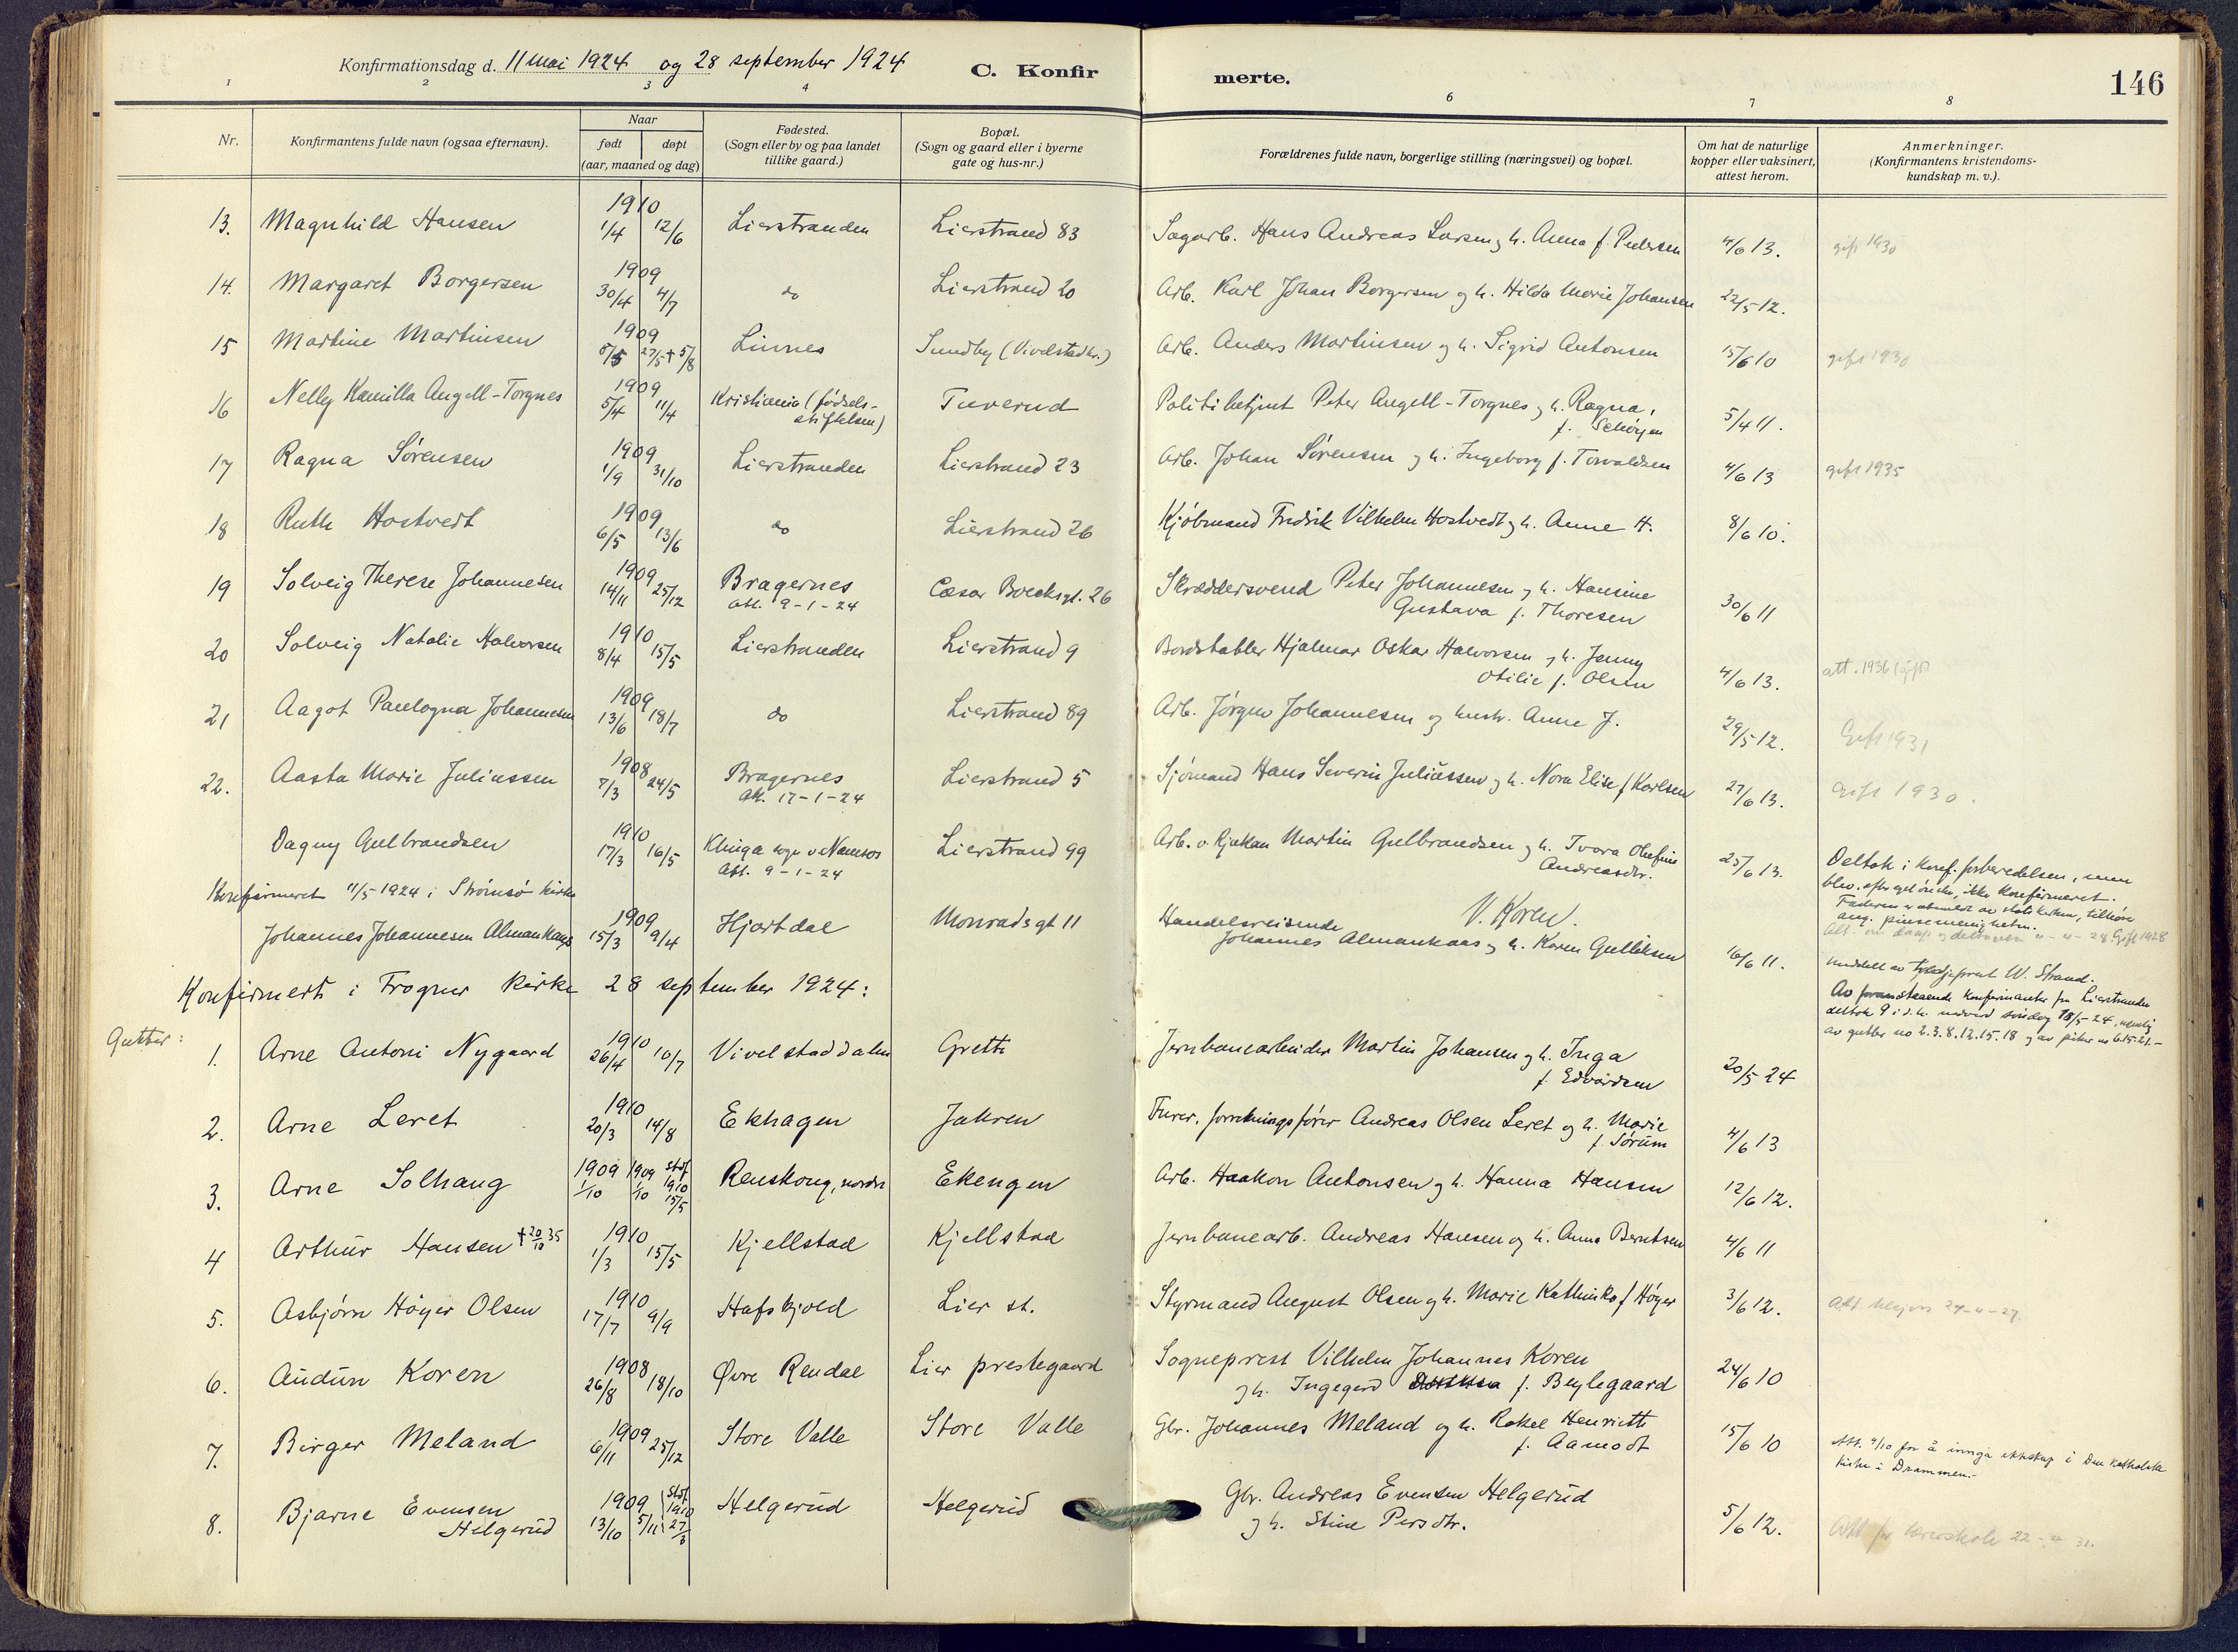 Konfirmationsdag d. 11 mai 1924 og 28 september 1924 C. Konfirmerte. 146
1 2 3 4 6 7 8
Nr. Konfirmantens fulde navn (ogsaa efternavn). Naar født døpt (aar, maaned og dag) Fødested. (Sogn eller by og paa landet tillike gaard.) Bopæl. (Sogn og gaard eller i byerne gate og hus-nr.) Forældrenes fulde navn, borgerlige stilling (næringsvei) og bopæl. Om hat de naturlige kopper eller vaksinert, attest herom. Anmerkninger. (Konfirmantens kristendoms-kundskap m. v.).
13. Magnhild Hansen 1910 1/4 12/6 Lierstranden Lierstrand 83 Sagarb. Hans Andreas Larsen og h. Anna f. Pedersen 4/6 13. gift 1930
14. Margaret Borgersen 1909 30/4 4/7 do Lierstrand 20 Arb. Karl Johan Borgersen og h. Hilda Marie Johansen 22/5 12.
15 Martine Martinsen 1909 8/5 27/5 + 5/8 Linnes Sundby (Vivelstadkr.) Arb. Anders Martinsen og h. Sigrid Antonsen 15/6 10 gift 1930
16 Nelly Kamilla Angell-Torgnes 1909 5/4 11/4 Kristiania (fødsels-stiftelsen) Tuverud Politibetjent Peter Angell-Torgnes og h. Ragna, f. 5/4 11.
17 Ragna Sørensen 1909 1/9 31/10 Lierstranden Lierstrand 23 Arb. Johan Sørensen og h. Ingeborg f. Torvaldsen 4/6 13 gift 1935
18 Ruth Hostvedt 1909 6/5 13/6 do Lierstrand 26 Kjøbmand Fredrik Vilhelm Hostvedt og h. Anne H. 8/6 10.
19 Solveig Therese Johannesen 1909 14/11 25/12 Bragernes Att. 9-1-24 Cæsar Boecksgt. 26 Skræddersvend Peter Johannesen og h. Hansine Gustava f. Thoresen 30/6 11
20 Solveig Natalie Halvorsen 1910 8/4 15/5 Lierstranden Lierstrand 9 Bordstabler Hjalmar Oskar Halvorsen og h. Jenny Otilie f. Olsen 4/6 13. att. 1936 (gift)
21 Aagot Paulogna Johannesen 1909 13/6 18/7 do Lierstrand 89 Arb. Jørgen Johannesen og hustr. Anne J. 29/5 12. Gift 1931
22. Aasta Marie Juliussen 1908 7/3 24/5 Bragernes Att. 17-1-24 Lierstrand 5 Sjømand Hans Severin Juliussen og h. Nora Elise f Karlsen 27/6 13. Gift 1930.
Dagny Gulbrandsen 1910 17/3 16/5 Klinga sogn v Namsos Att. 9-1-24 Lierstrand 99 Arb. v. Rjukan Martin Gulbrandsen og h. Ivara Olufine Andreasdtr. 25/6 13. Deltok i konf. forberedelsen, men blev, efter eget ønske, ikke konfirmeret. Faderen er utmeldt av statskirken, tilhører ang. pinsemenigheten.
V. Koren.
Konfirmeret 11/5-1924 i Strømsø kirke
Johannes Johannesen Almankaas 1909 15/3 9/4 Hjartdal Monradsgt 11 Handelsreisende Johannes Almankaas og h. Karen Gulliksen 16/6 11. Gift 1928
meddelt av W. Strand.
Av foranstaaende konfirmanter fra Lierstranden deltok 9 i d.h. nadverd søndag 18/5-24, nemlig av gutter no 2.3.8.12.15.18 og av piker no 6.15.21.-
Konfirmert i Frogner kirke 28 september 1924:
Gutter:
1. Arne Antoni Nygaard 1910 26/4 10/7 Vivelstaddalen Grette Jernbanearbeider Martin Johansen og h. Inga f. Edvardsen 20/5 24
2. Arne Leret 1910 20/3 14/8 Ekhagen Jahren Furer, forretningsfører Andreas Olsen Leret og h. Marie f. Sørum 4/6 13
3. Arne Solhaug 1909 1/10 1909 1/10 stdf 1910 15/5 Renskoug, nordre Ekengen Arb. Haakon Antonsen og h. Hanna Hansen 12/6 12.
4 Arthur Hansen + 20/10 35 1910 1/3 15/5 Kjellstad Kjellstad Jernbanearb. Andreas Hansen og h. Anna Berntsen 4/6 11
5. Asbjørn Høyer Olsen 1910 17/7 9/9 Hafskjold Lier st. Styrmand August Olsen og h. Marie Kathinka f Høyer 3/6 12.
6. Audun Koren 1908 26/8 18/10 Øvre Rendal Lier prestegaard Sogneprest Vilhelm Johannes Koren og h. Ingegerd f. Beylegaard 24/6 10
7. Birger Meland 1909 6/11 25/12 Store Valle Store Valle Gbr. Johannes Meland og h. Rakel Henriette f. Aamodt 15/6 10 Att. 9/10 for å inngå ekteskap i Den katholske kirke i Drammen.-
8. Bjarne Evensen Helgerud 1909 13/10 5/11 stdf 1910 27/3 Helgerud Helgerud Gbr. Andreas Evensen Helgerud og h. Stine Persdtr. 5/6 12.